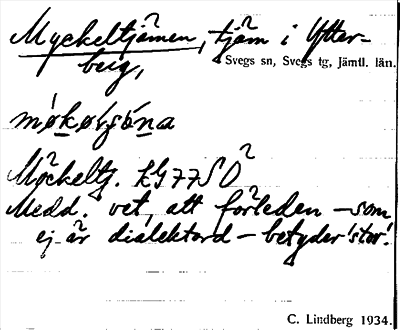 Myckeltjärnen, tjärn i Ytter-
berg,
Svegs sn, Svegs tg, Jämtl. län.
Möckeltj. LG77SO
Medd. vet, att förleden – som
ej är dialektord – betyder 'stor'.
C. Lindberg 1934.